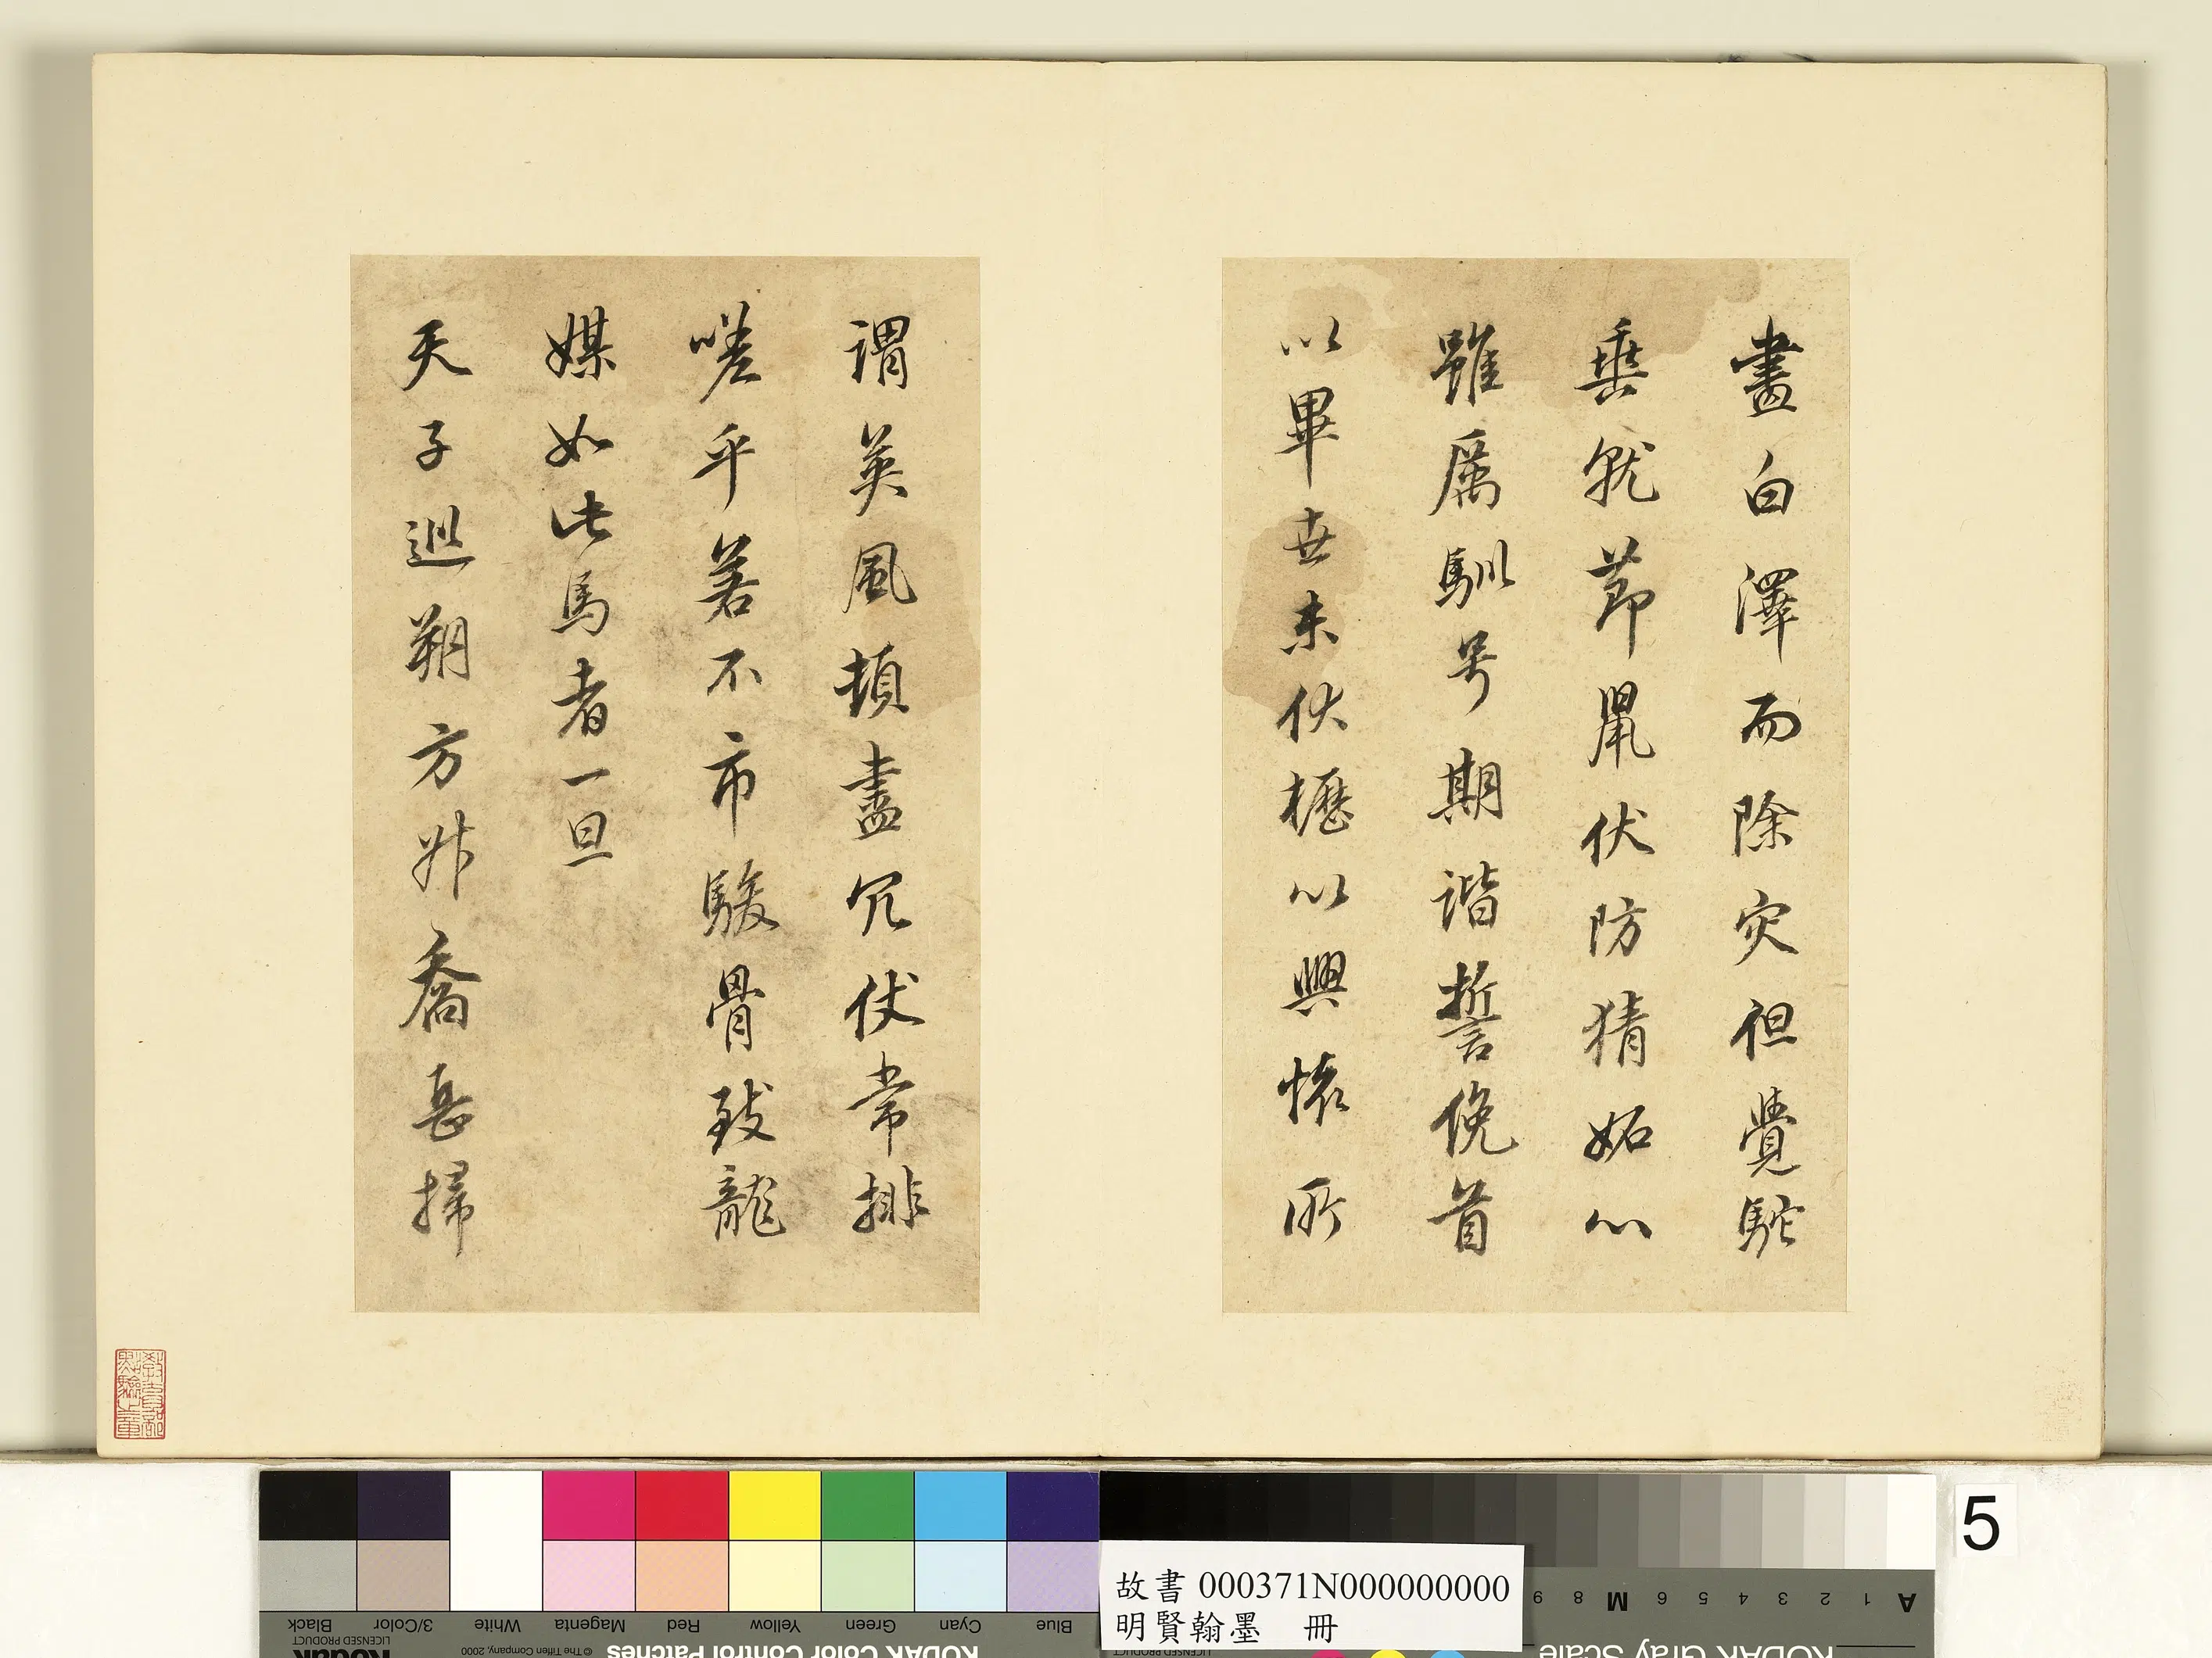 畫白澤而除灾但覺駝
垂就節鼠伏防猜妬心
雖厲馴号期諧誓俛首
以畢世未伏櫪以興懷所
謂英風頓盡冗仗常排
嗟乎若不市駿骨致龍
媒如此馬者一旦
天子巡朔方升喬岳掃
5
故書 000371N000000000
明賢翰墨 冊
Black 3/Color White Magenta Red Yellow Green Cyan Blue
LICENSED PRODUCT
© The Tiffen Company, 2000
Kodak
KODAK Color Control Patches
A 1 2 3 4 5 6 M 8 9
KODAK Gray Scale
LICENSED PRODUCT